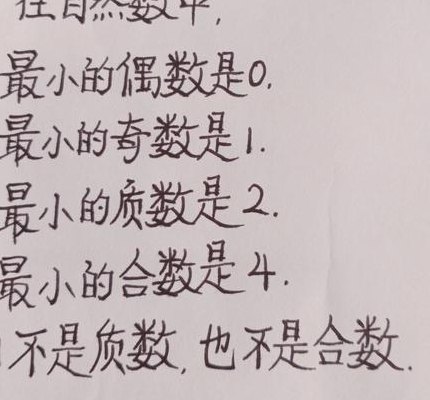 在自然数中,
最小的偶数是0.
最小的奇数是1.
最小的质数是2.
最小的合数是4.
1不是质数,也不是合数.